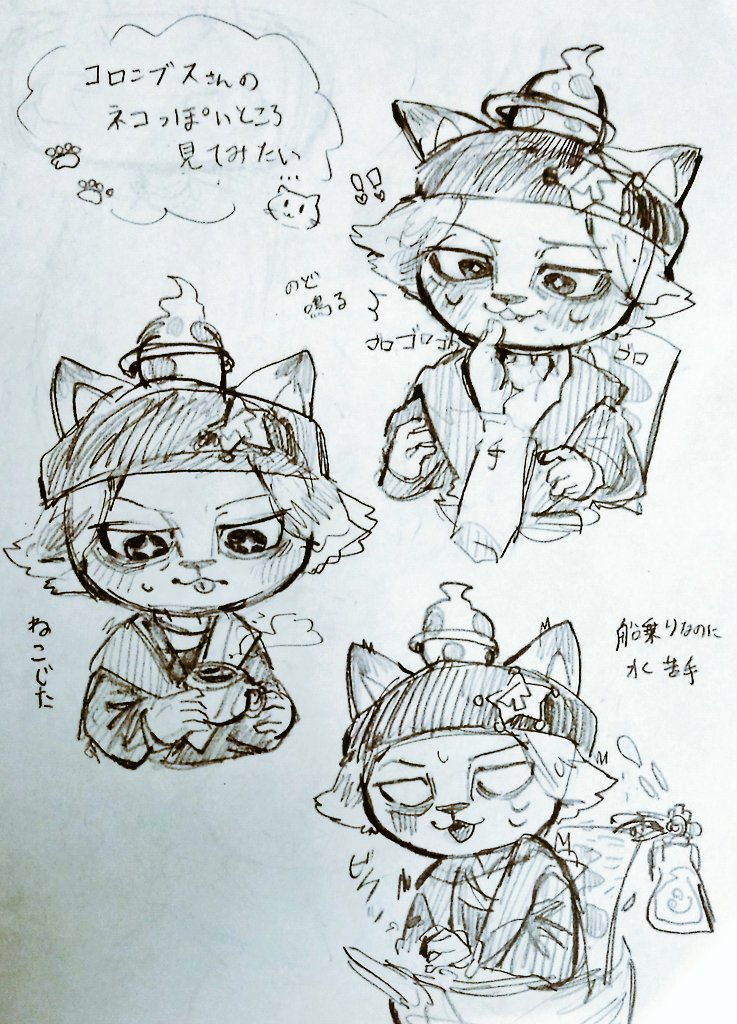 コロンブスさんの
ネコっぽいところ
見てみたい
…
!!
のど
鳴る
ゴロゴロゴロ
ゴロ
ねこじた
船乗りなのに
水苦手
ビクッ